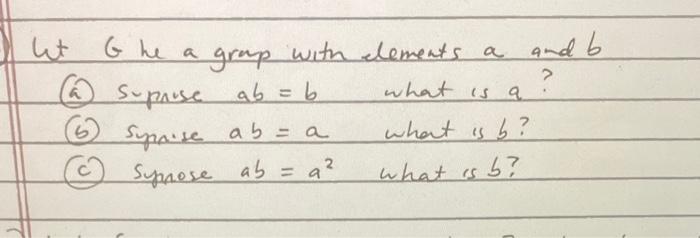 Let G be a group with elements a and b
(a) Suppose ab = b what is a?
(b) Suppose ab = a what is b?
(c) Suppose ab = a² what is b?